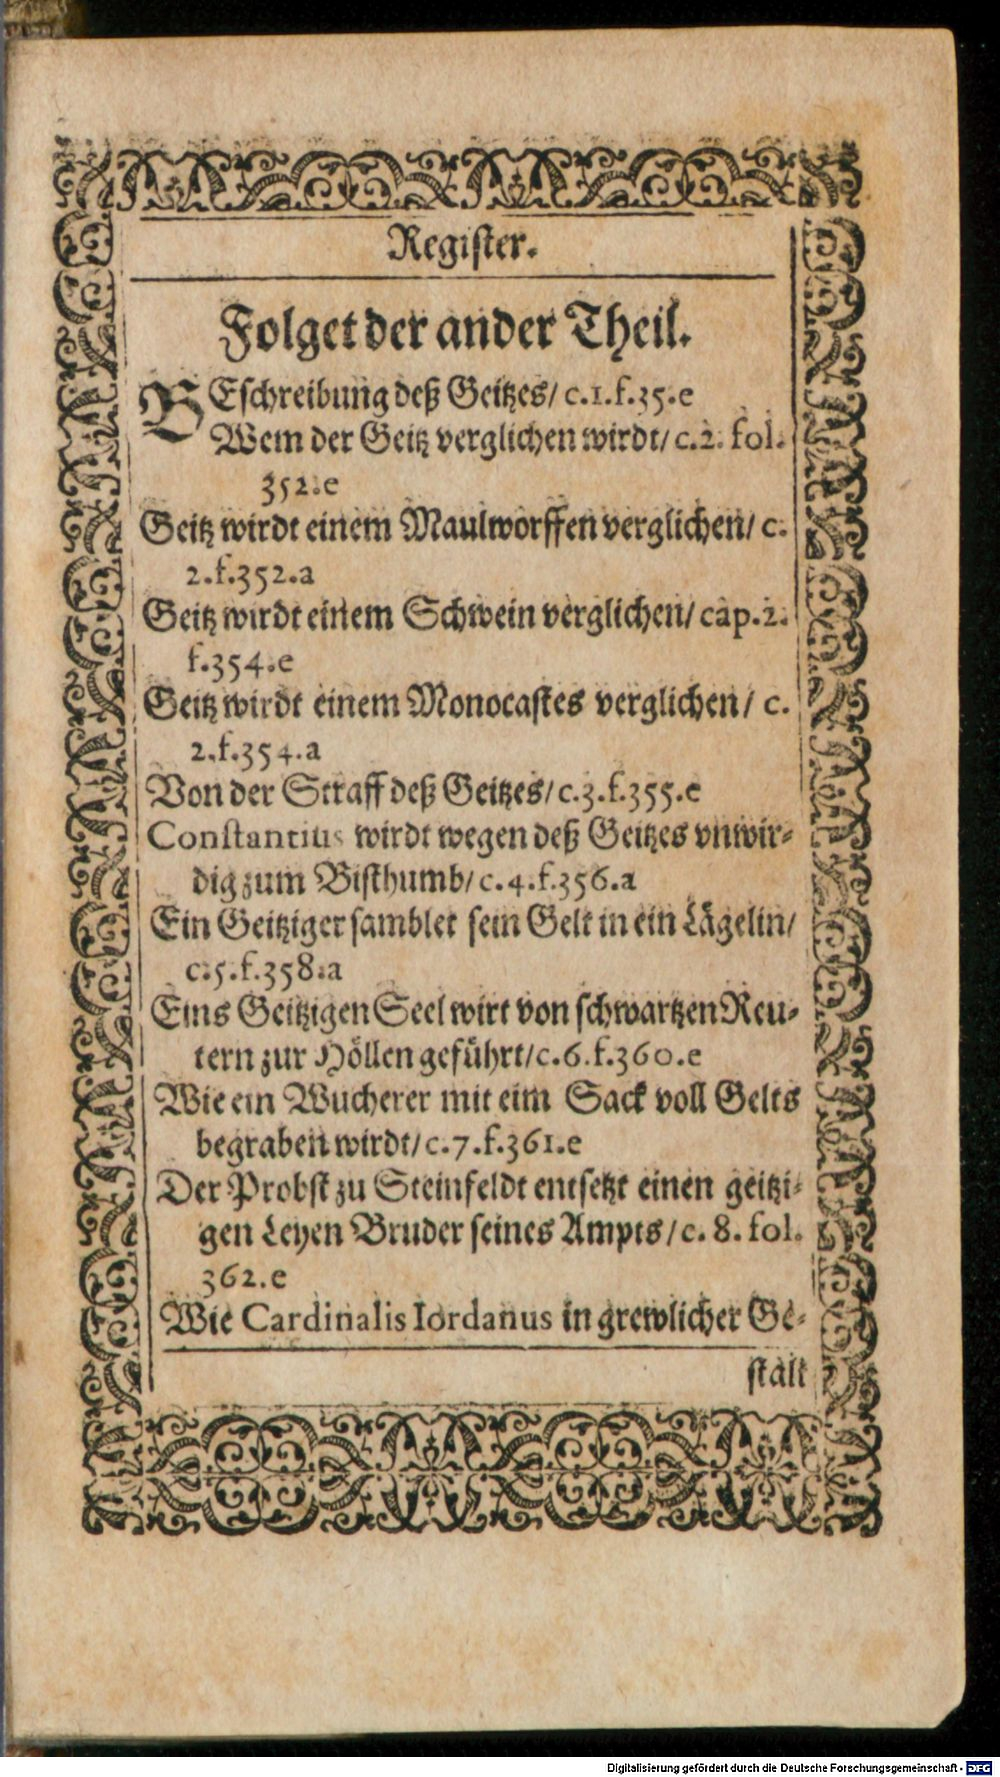 Register.
Folget der ander Theil.
BEschreibung deß Geitzes/ c.1.f.35.e
Wem der Geitz verglichen wirdt/ c.2. fol.
352.e
Geitz wirdt einem Maulworffen verglichen/ c.
2.f.352.a
Geitz wirdt einem Schwein verglichen/ cap.2.
f.354.e
Geitz wirdt einem Monocastes verglichen/ c.
2.f.354.a
Von der Straff deß Geitzes/ c.3.f.355.e
Constantius wirdt wegen deß Geitzes vnwir-
dig zum Bisthumb/ c.4.f.356.a
Ein Geitziger samblet sein Gelt in ein Lägelin/
c.5.f.358.a
Eins Geitzigen Seel wirt von schwartzen Reu-
tern zur Höllen geführt/ c.6.f.360.e
Wie ein Wucherer mit eim Sack voll Gelts
begraben wirdt/ c.7.f.361.e
Der Probst zu Steinfeldt entsetzt einen geitzi-
gen Leyen Bruder seines Ampts/ c. 8. fol.
362.e
Wie Cardinalis Iordanus in grewlicher Ge-
stalt
Digitalisierung gefördert durch die Deutsche Forschungsgemeinschaft - DFG